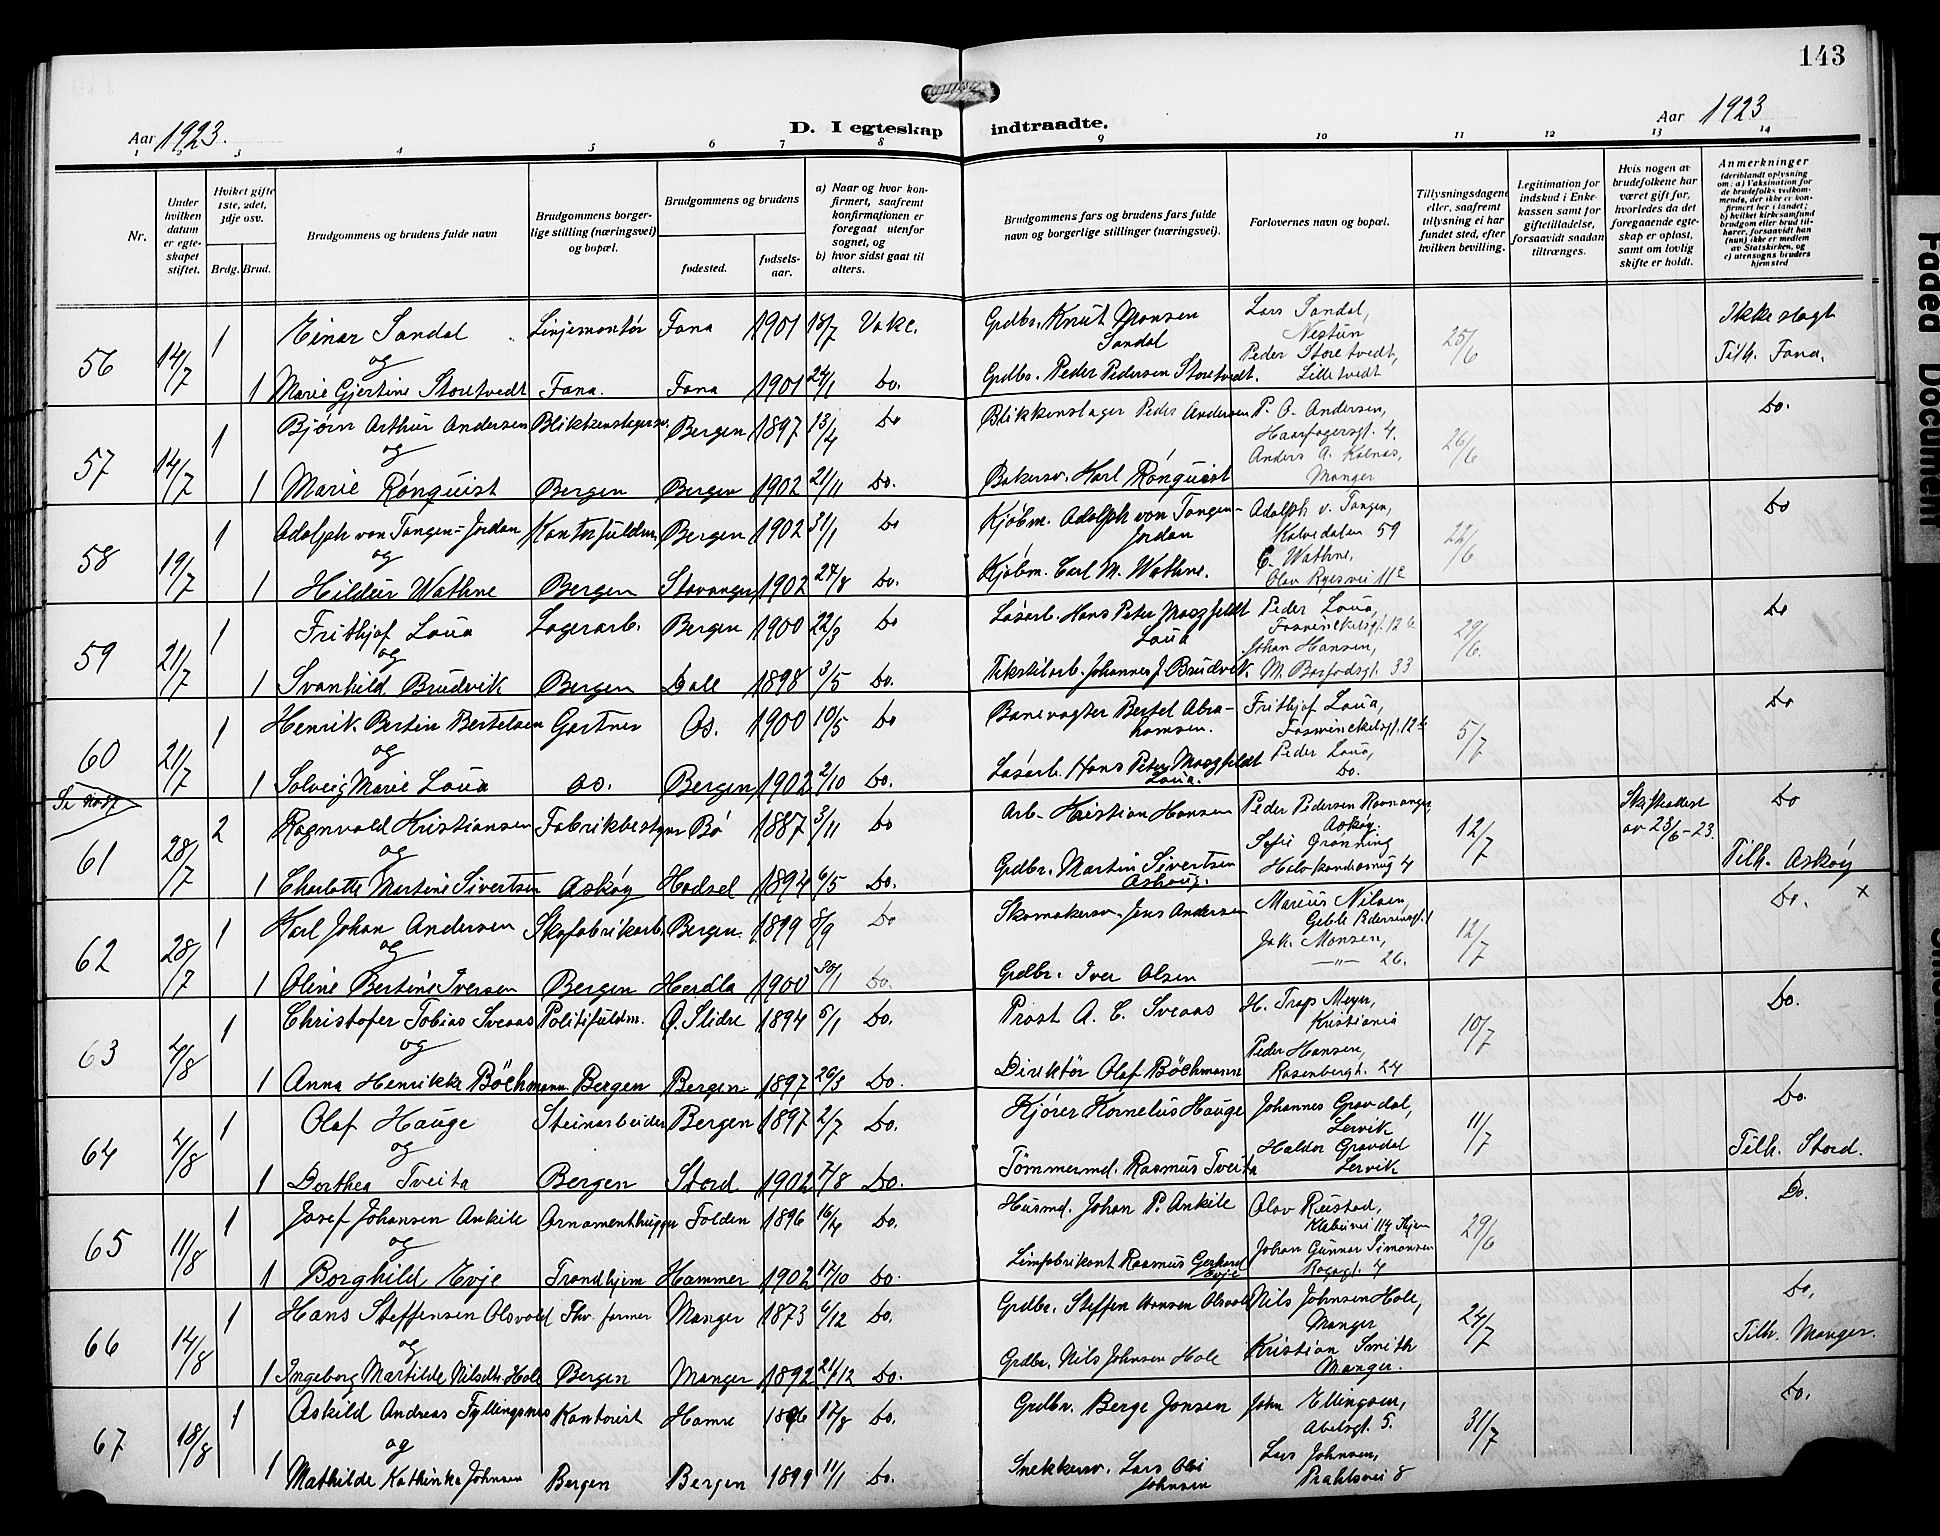 143
Aar 1923.
D. I egteskap indtraadte.
Aar 1923
1 2 3 4 5 6 7 8 9 10 11 12 13 14
Nr.
Under hvilken datum er egteskapet stiftet.
Hvilket gifte 1ste, 2det, 3dje osv.
Brdg. Brud.
Brudgommens og brudens fulde navn
Brudgommens borgerlige stilling (næringsvei) og bopæl.
Brudgommens og brudens
fødested.
fødselsaar.
a) Naar og hvor konfirmert, saafremt konfirmationen er foregaat utenfor sognet, og
b) hvor sidst gaat til alters.
Brudgommens fars og brudens fars fulde navn og borgerlige stillinger (næringsvei).
Forlovernes navn og bopæl.
Tillysningsdagene eller, saafremt tillysning ei har fundet sted, efter hvilken bevilling.
Legitimation for indskud i Enkekassen samt for giftetilladelse, forsaavidt saadan tiltrænges.
Hvis nogen av brudefolkene har været gift før, hvorledes da det foregaaende egteskap er opløst, samt om lovlig skifte er holdt.
Anmerkninger
(deriblandt oplysning om: a) Vaksination for de brudefolks vedkommende, der ikke er konfirmert her i landet; b) hvilket kirkesamfund brudgom eller brud tilhører, forsaavidt han (hun) ikke er medlem av Statskirken, og c) utensogns bruders hjemsted
56 14/7 1 Einar Sandal Linjemontør Fana 1901 18/7 Vakc. Grdbr. Knut Monsen Sandal Lars Sandal, Nestun 25/6 Ikke slegt
og Peder Storetvedt, Tilh. Fana.
1 Marie Gjertine Storetvedt Fana. Fana 1901 24/1 Do. Grdbr. Peder Pedersen Storetvedt. Lilletvedt
57 14/7 1 Bjørn Arthur Andersen Blikkenslagersv. Bergen 1897 13/4 Do Blikkenslager Peder Andersen P. A. Andersen, Haarfagersgt. 4. 26/6 Do.
og Anders A. Kalnas,
1 Marie Rönquist Bergen Bergen 1902 21/11 Do. Bakersv. Karl Rönquist Manger
58 19/7 1 Adolph von Tangen-Jordan Kontorfuldm. Bergen 1902 31/1 Do Kjøbm. Adolph von Tangen-Jordan Adolph v. Tangen, Kalvedalen 59 22/6 Do
og C. Wathne,
1 Hildur Wathne Bergen Stavanger 1902 27/8 Do. Kjøbm. Carl M. Wathne. Olav Ryesvei 11c
59 21/7 1 Frithjof Loua Lagerarb. Bergen 1900 22/3 Do Løsarb. Hans Peter Maszfeldt Loua Peder Loua, Foswinckelsgt. 12 b 29/6. Do
og Johan Hansen,
1 Svanhild Brudvik Bergen Dale 1898 3/5 Do. Tekstilarb. Johannes J. Brudvik. M. Barfodsgt. 33
60 21/7 1 Henrik Bertin Bertelsen Gartner Os. 1900 10/5 Do Banevogter Bertel Abrahamsen. Frithjof Loua, Foswinckelsgt. 12b 5/7 Do
og Peder Loua,
1 Solveig Marie Loua Os. Bergen 1902 2/10 Do. Løsarb. Hans Peter Maszfeldt Loua. Do.
61 28/7 2 Ragnvald Kristiansen Fabrikbestyrer Bø 1887 3/11 Do Arb. Kristian Hansen Peder Pedersen Ravnanger, Askøy. 12/7 Skifteattest av 23/6-23. Do
og Sofie Grønning Tilh. Askøy
1 Charlotte Martine Sivertsen Askøy Hadsel 1894 6/5 Do. Grdbr. Martin Sivertsen
62 28/7 1 Karl Johan Andersen Skofabrikarb. Bergen. 1899 8/9 Do Skomakersv. Jens Andersen Marius Nilsen, 12/7 Do. x
og Jak. Monsen,
1 Oline Bertine Iversen Bergen Herdla 1900 30/1 Do. Grdbr. Iver Olsen —"— 26.
63 4/8 1 Christofer Tobias Sveaas Politifuldm. Ø. Slidre 1894 5/1 Do. Prost A. C. Sveaas H. Trap Meyer, Kristiania 10/7 Do.
og Peder Hansen,
1 Anna Henrikke Böchmann. Bergen Bergen 1897 26/3 Do. Direktør Olaf Böchmann Rosenbergt. 24
64 4/8 1 Olaf Hauge Steinarbeider Bergen 1897 2/7 Do. Kjører Kornelius Hauge Johannes Gravdal, Lervik 11/7 Do.
og Haldor Gravdal Tilh. Stord.
1 Dorthea Tveita Bergen Stord 1902 7/8 Do. Tømmermd. Rasmus Tveita Lervik
65 11/8 1 Josef Johansen Ankile Ornamenthugger Folden 1896 16/4 Do. Husmd. Johan P. Ankile Olav Rustad, 29/6 Do.
og Johan Gunnar Simonsen
1 Borghild Evje Trondhjem Hammer 1902 17/10 Do. Limfabrikant Rasmus Gerhard Evje
66 14/8 1 Hans Steffensen Olsvold Fhv. farmer Manger 1873 6/12 Do. Grdbr. Steffen Hansen Olsvold Nils Johnsen Hole, Manger 24/7 Do.
og Kristian Smith Tilh. Manger.
1 Ingeborg Martilde Nilsdtr. Hole Bergen Manger 1892 21/12 Do. Grdbr. Nils Johnsen Hole Manger.
67 18/8 1 Askild Andreas Fyllingsnes Kontorist Hamre 1896 17/8 Do. Grdbr. Berge Jonsen John Ellingsen, Abelsgt. 5. 31/7 Do.
og Lars Johnsen,
1 Mathilde Kathinka Johnsen Bergen Bergen 1899 11/1 Do. Snekkersv. Lars Johnsen Prahlsvei 8
Faded Document